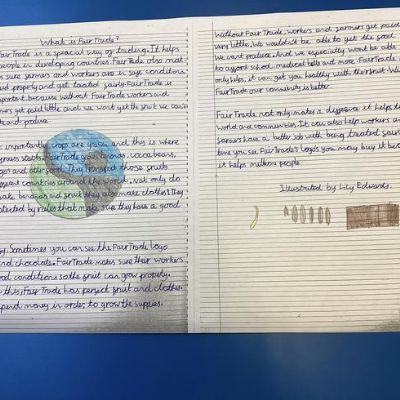 What is FairTrade?
FairTrade is a special way of trading. It helps
people in developing countries. FairTrade also mak
sure farmers and workers are in safe conditions
and properly and get treated fairly. FairTrade is
important because without FairTrade workers and
farmers get paid little and we won't get the fruit we can't
and produce.
important crops are grown and this is where
starts. FairTrade grows bananas, cocoa beans,
and other They those fruits
different countries around the Not only do
make, bananas and fruit they also make clothes! They
protected by rules that make sure they have a good
Sometimes you can see the FairTrade logo
and chocolate. FairTrade makes sure their workers
good conditions so the fruit can grow properly.
this, FairTrade has perfect fruit and clothes.
spend money in order, to grow the supplies.
Without FairTrade, workers and farmers get paid
very little. We wouldn't be able to get the good
we can't produce. And we especially wont be able
to afford school, medical bills and more. FairTrade
only helps, it can get you healthy with their fruit. With
FairTrade our community is better.
FairTrade not only makes a difference it helps the
world and communities. It can also help workers and
farmers have a better job with being treated fairly
time you see FairTrade's logo you may buy it because
it helps million people
Illustrated by Lily Edwards.